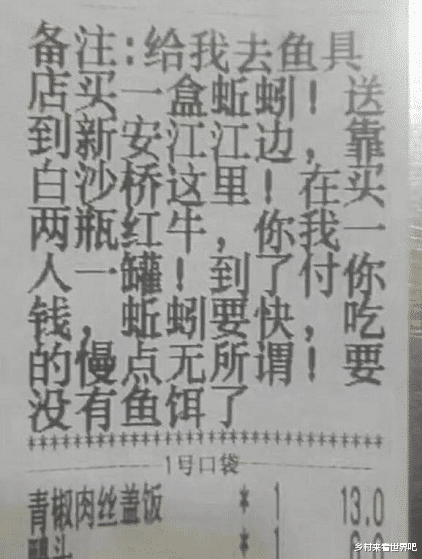 备注:给我去鱼具
店买一盒蚯蚓！送
到新安江江边，靠
白沙桥这里！在买
两瓶红牛，你我一
人一罐！到了付你
钱，蚯蚓要快，吃
的慢点无所谓！要
没有鱼饵了
********************************
1号口袋
青椒肉丝盖饭 * 1 13.0
* 1
乡村来看世界吧